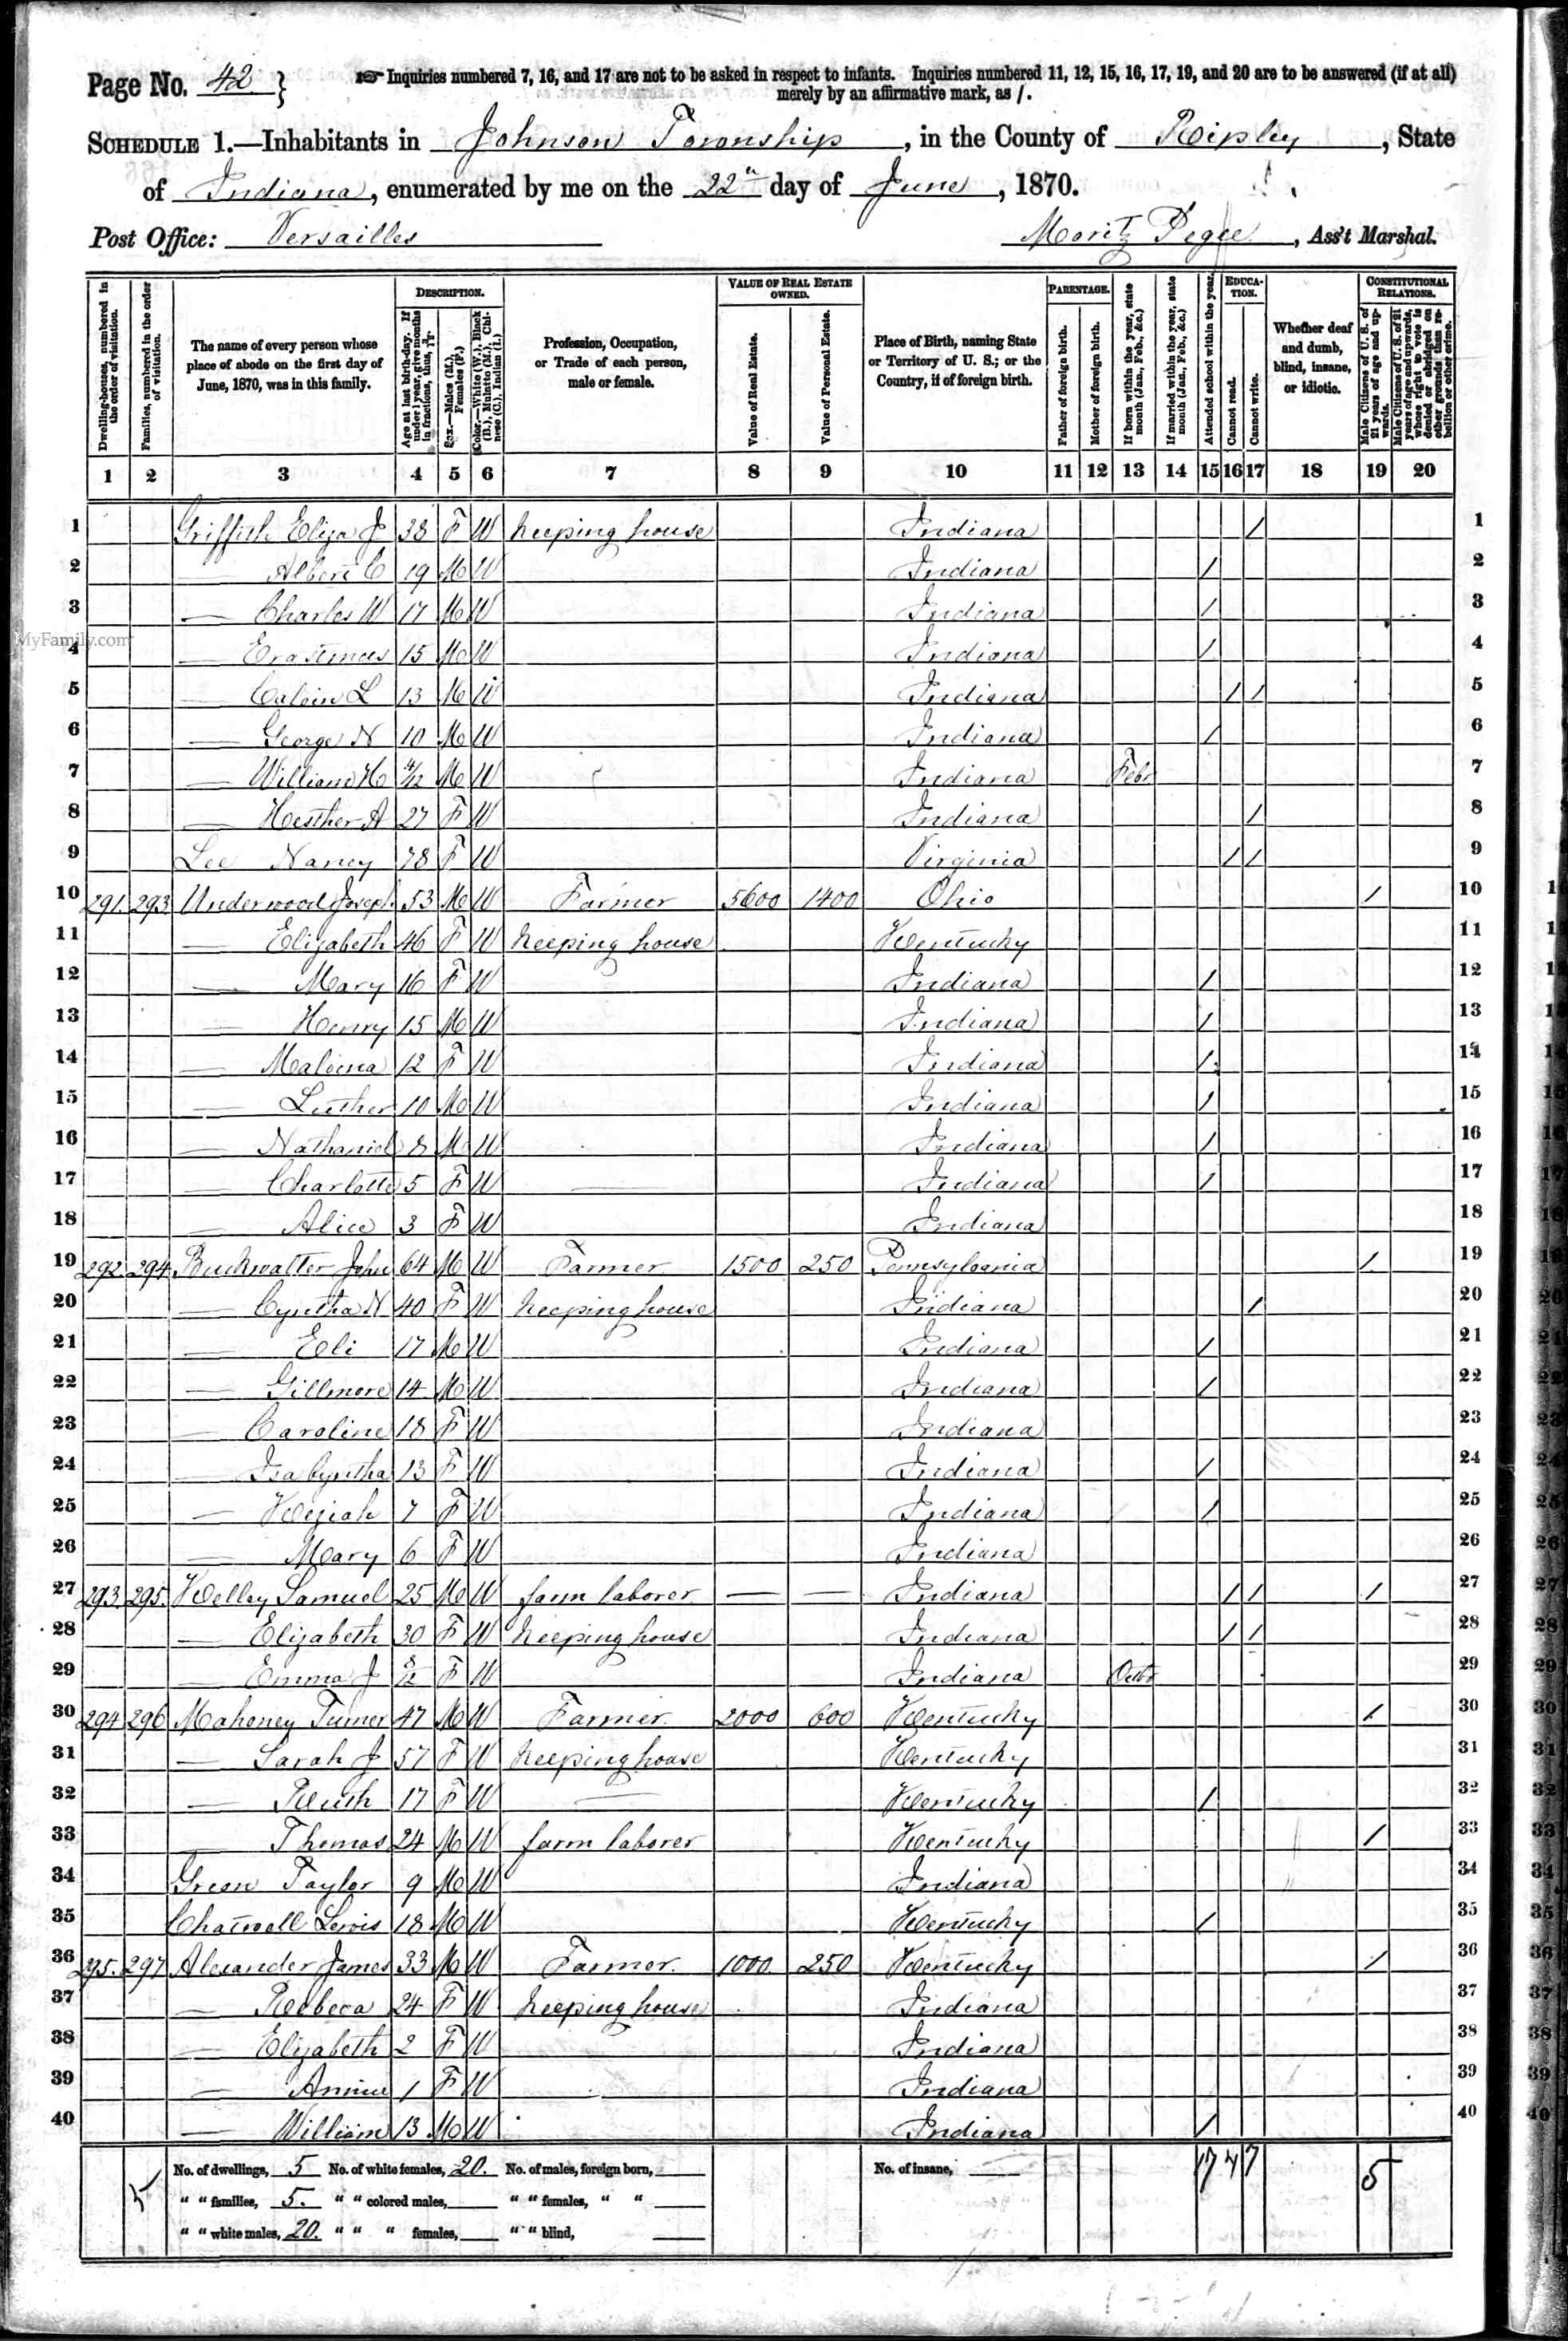 Page No. 42
Inquiries numbered 7, 16, and 17 are not to be asked in respect to infants. Inquiries numbered 11, 12, 15, 16, 17, 19, and 20 are to be answered (if at all)
merely by an affirmative mark, as /.
SCHEDULE 1.—Inhabitants in Johnson Township, in the County of Ripley, State
of Indiana, enumerated by me on the 22" day of June, 1870.
Post Office: Versailles Moritz, Ass't Marshal.
Dwelling-houses, numbered in the order of visitation.
Families, numbered in the order of visitation.
The name of every person whose place of abode on the first day of June, 1870, was in this family.
DESCRIPTION.
Age at last birth-day. If under 1 year, give months in fractions, thus, 3/12.
Sex.—Males (M.), Females (F.)
Color.—White (W.), Black (B.), Mulatto (M.), Chinese (C.), Indian (I.)
Profession, Occupation, or Trade of each person, male or female.
VALUE OF REAL ESTATE OWNED.
Value of Real Estate.
Value of Personal Estate.
Place of Birth, naming State or Territory of U. S.; or the Country, if of foreign birth.
PARENTAGE.
Father of foreign birth.
Mother of foreign birth.
If born within the year, state month (Jan., Feb., &c.)
If married within the year, state month (Jan., Feb., &c.)
Attended school within the year.
EDUCATION.
Cannot read.
Cannot write.
Whether deaf and dumb, blind, insane, or idiotic.
CONSTITUTIONAL RELATIONS.
Male Citizens of U. S. of 21 years of age and upwards.
Male Citizens of U. S. of 21 years of age and upwards, whose right to vote is denied or abridged on other grounds than rebellion or other crime.
1 2 3 4 5 6 7 8 9 10 11 12 13 14 15 16 17 18 19 20
1 Griffith Eliza J 38 F W Keeping house Indiana / 1
2 — Albert C 19 M W Indiana / 2
3 — Charles W 17 M W Indiana / 3
4 — Erastmus 15 M W Indiana / 4
5 — Calvin L 13 M W Indiana / / 5
6 — George N 10 M W Indiana / 6
7 — William H 4/12 M W Indiana Febr 7
8 — Hesther A 27 F W Indiana / 8
9 Lee Nancy 78 F W Virginia / / 9
10 291. 293 Underwood Joseph 53 M W Farmer 5600 1400 Ohio / 10
11 — Elizabeth 46 F W Keeping house Kentucky 11
12 — Mary 16 F W Indiana / 12
13 — Henry 15 M W Indiana / 13
14 — Malvina 12 F W Indiana / 14
15 — Luther 10 M W Indiana / 15
16 — Nathaniel 8 M W Indiana / 16
17 — Charlotte 5 F W — Indiana / 17
18 — Alice 3 F W Indiana 18
19 292. 294 Buckwalter John 64 M W Farmer 1500 250 Pennsylvania / 19
20 — Cyntha N 40 F W Keeping house Indiana / 20
21 — Eli 17 M W Indiana / 21
22 — Gillmore 14 M W Indiana / 22
23 — Caroline 18 F W Indiana 23
24 — Isa Cyntha 13 F W Indiana / 24
25 — Keziah 7 F W Indiana / 25
26 — Mary 6 F W Indiana 26
27 293. 295. Kelley Samuel 25 M W farm laborer — — Indiana / / / 27
28 — Elizabeth 30 F W Keeping house Indiana / / 28
29 — Emma J 8/12 F W Indiana Octbr 29
30 294 296 Mahoney Turner 47 M W Farmer. 2000 600 Kentucky / 30
31 — Sarah J 57 F W Keeping house Kentucky 31
32 — 17 F W — Kentucky / 32
33 Thomas 24 M W farm laborer Kentucky / 33
34 Green Taylor 9 M W Indiana 34
35 Chatwell Lewis 18 M W Kentucky / 35
36 295. 297 Alexander James 33 M W Farmer. 1000. 250 Kentucky / 36
37 — Rebeca 24 F W Keeping house Indiana 37
38 — Elizabeth 2 F W Indiana 38
39 — Annie 1 F W Indiana 39
40 — William 13 M W Indiana / 40
No. of dwellings, 5 No. of white females, 20. No. of males, foreign born, No. of insane, 17 4 7 5
5 " " families, 5. " " colored males, " " females, " "
" " white males, 20. " " " females, " " blind,
MyFamily.com